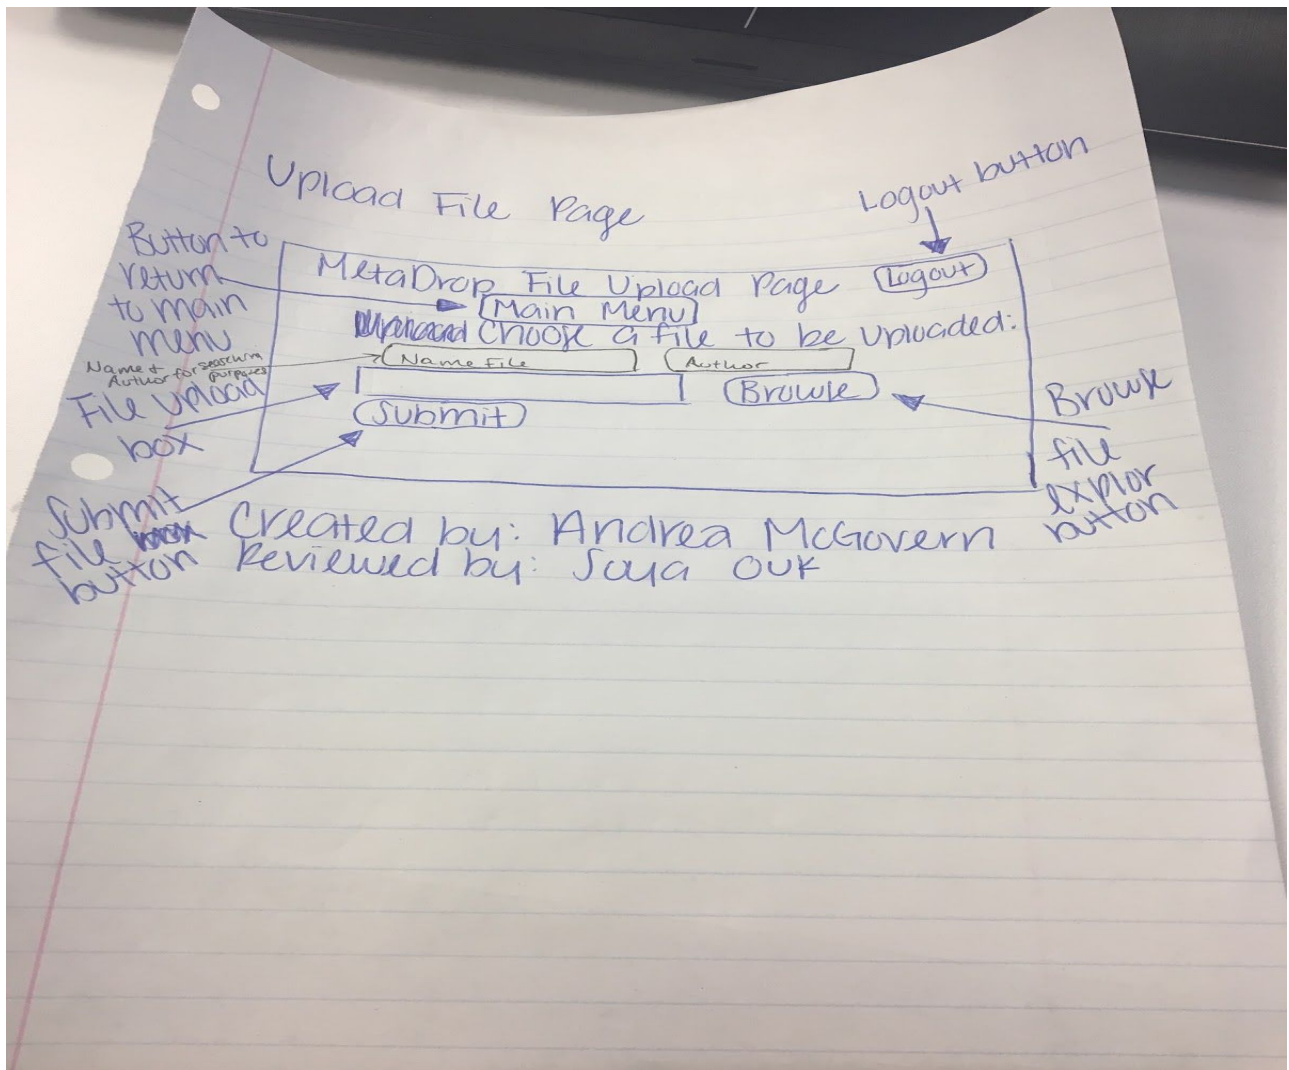 Upload File Page
Logout button
Button to
return
to main
menu
MetaDrop File Upload Page
Logout
Main Menu
Choose a file to be uploaded:
Name &
Author for
purposes
Name File
Author
File upload
box
Browse
Submit
Browse
file
explor
button
Submit
file
button
Created by: Andrea McGovern
Reviewed by: Ouk